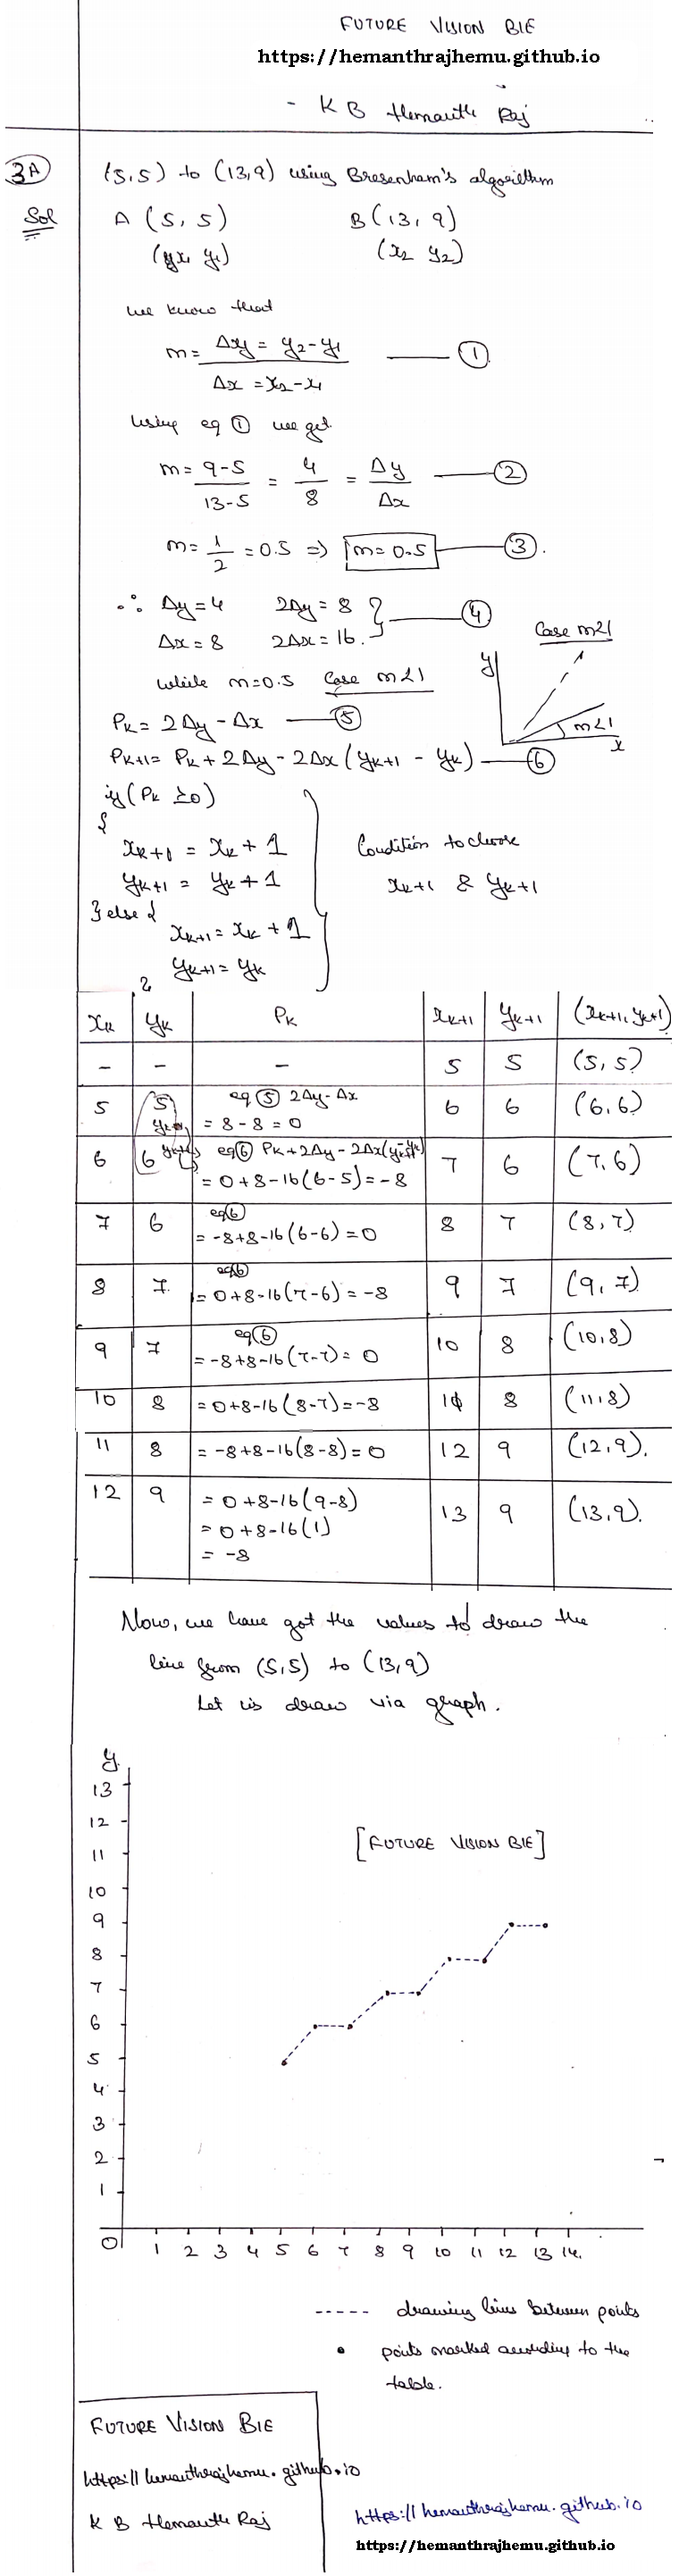 FUTURE VISION BIE
https://hemanthrajhemu.github.io
- K B Hemanth Raj
3A (5,5) to (13,9) using Bresenham's algorithm
Sol A (5, 5) B (13, 9)
(x₁ y₁) (x₂ y₂)
we know that
m = Δy = y₂-y₁ / Δx = x₂-x₁ — ①
Using eq ① we get
m = 9-5 / 13-5 = 4/8 = Δy/Δx — ②
m = 1/2 = 0.5 => m = 0.5 — ③.
∴ Δy = 4 2Δy = 8 } — ④
Δx = 8 2Δx = 16.
Case m<1
y
while m=0.5 Case m<1
m<1
x
Pk = 2Δy - Δx — ⑤
Pk+1 = Pk + 2Δy - 2Δx (yk+1 - yk) — ⑥
if (Pk ≥0)
{
xk+1 = xk + 1
yk+1 = yk + 1
} else {
xk+1 = xk + 1
yk+1 = yk
}
Condition to choose
xk+1 & yk+1
xk yk Pk xk+1 yk+1 (xk+1, yk+1)
- - - 5 5 (5, 5)
5 5 eq ⑤ 2Δy-Δx = 8 - 8 = 0 6 6 (6,6)
6 6 eq ⑥ Pk + 2Δy - 2Δx(yk+1-yk) = 0+8-16(6-5) = -8 7 6 (7,6)
7 6 eq ⑥ = -8+8-16(6-6) = 0 8 7 (8,7)
8 7 eq ⑥ = 0+8-16(7-6) = -8 9 7 (9,7)
9 7 eq ⑥ = -8+8-16(7-7) = 0 10 8 (10,8)
10 8 = 0+8-16(8-7) = -8 11 8 (11,8)
11 8 = -8+8-16(8-8) = 0 12 9 (12,9).
12 9 = 0+8-16(9-8) 13 9 (13,9).
= 0+8-16(1)
= -8
Now, we have got the values to draw the
line from (5,5) to (13,9)
Let us draw via graph.
y
13
12
[FUTURE VISION BIE]
11
10
9
8
7
6
5
4
3
2
1
0 1 2 3 4 5 6 7 8 9 10 11 12 13 14.
----- drawing line between points
• points marked according to the
table.
FUTURE VISION BIE
https://hemanthrajhemu.github.io
K B Hemanth Raj
https://hemanthrajhemu.github.io
https://hemanthrajhemu.github.io